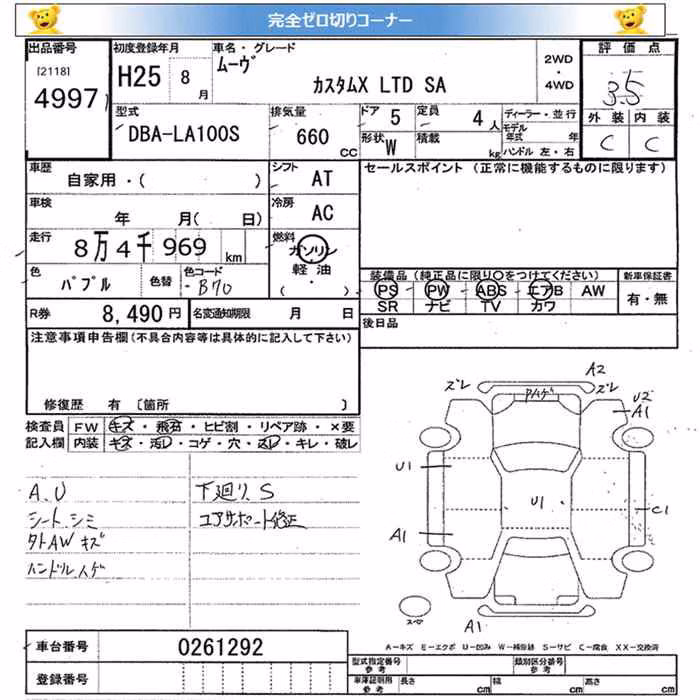 完全ゼロ切りコーナー
出品番号 初度登録年月 車名・グレード 評価点
[2118] 4997 H25 8月 ムーヴ カスタムX LTD SA 2WD・4WD 3.5
外装 内装
C C
型式 排気量 ドア 5 定員 4人 ディーラー・並行
DBA-LA100S 660cc 形状 W 積載 kg モデル年式 年
ハンドル 左・右
車歴 シフト セールスポイント (正常に機能するものに限ります)
自家用・( ) AT
車検 冷房
年 月( 日) AC
走行 燃料
8万4千969km ガソリン
軽油
( ・ )
色 色替 色コード 装備品(純正品に限り○をつけてください) 新車保証書
パブル -B70 PS PW ABS エアB AW 有・無
SR ナビ TV カワ
R券 8,490円 名変通知期限 月 日 後日品
注意事項申告欄(不具合内容等は具体的に記入して下さい)
修復歴 有〔箇所 〕
検査員 FW キズ・飛石・ヒビ割・リペア跡・×要
記入欄 内装 キズ・汚レ・コゲ・穴・スレ・キレ・破レ
A.U 下廻りS
シートシミ コアサポート修正
タイAWキズ
ハンドルハゲ
A2
ズレ ハゲ ズレ
U2
A1
U1
U1
C1
A1
スペア
A1
A-キズ E-エクボ U-凹み W-補修跡 S-サビ C-腐食 XX-交換済
車台番号 0261292
登録番号
型式指定番号 参考 類別区分番号 参考
車庫証明用 参考 長さ cm 幅 cm 高さ cm